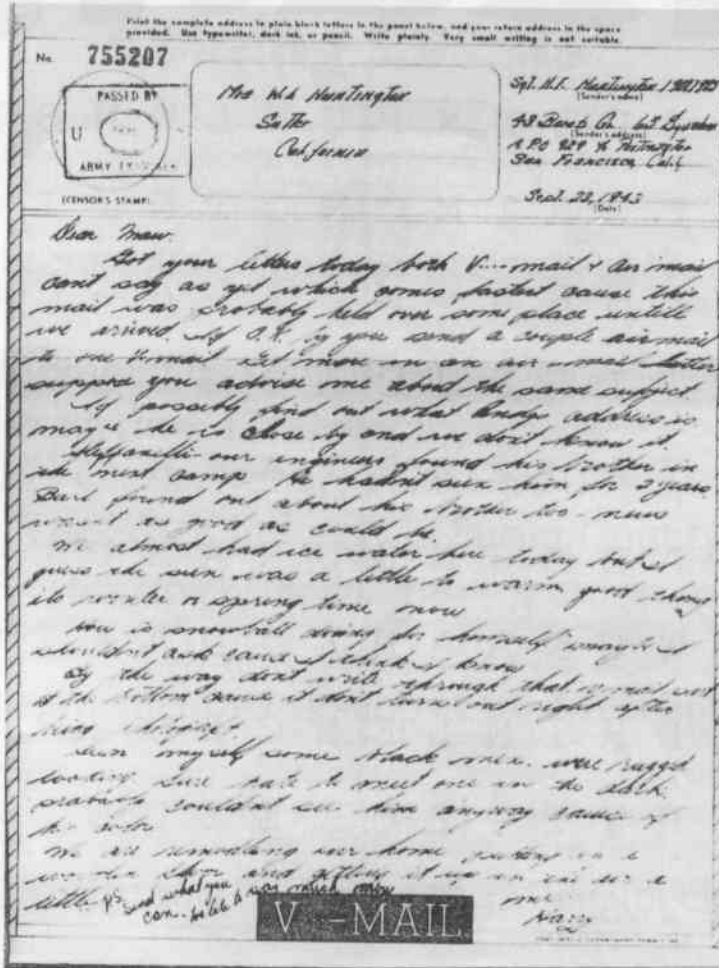 Print the complete address in plain block letters in the panel below, and your return address in the space
provided. Use typewriter, dark ink, or pencil. Write plainly. Very small writing is not suitable.
No. 755207
PASSED BY
U
ARMY
(CENSOR'S STAMP)
Mrs W.A. Huntington
California
Sgt. W.F. Huntington
(Sender's name)
43 Bomb Gp.
(Sender's address)
A.P.O. 929 % Postmaster
San Francisco, Calif
Sept. 22, 1943
(Date)
Dear Maw.
Got your letters today both V...-mail & air mail
cant say as yet which comes fastest cause this
mail was probably held over some place untill
we arived. If O.K. by you send a couple airmail
to one V-mail. Get more in an air-mail letter
suppose you advise me about the same subject.
If possibly find out what Andys address is
maybe he is close by and we don't know it.
our engineers found his brother in
the next camp. He hadn't seen him for 2 years
found out about his brother too - news
wasnt as good as could be.
We almost had ice water here today but I
guess the sun was a little to warm, good thing
its winter or spring time now
How is snowball doing for himself maybe I
shouldn't ask cause I think I know
By the way dont write through that v-mail
at the bottom cause it dont turn out right after
being
Seen myself some black men. were rugged
looking sure hate to meet one in the dark.
probably couldnt see him anyway cause of
his color
We are remodling our home putting in a
wooden floor and getting it up in the air a
little
PS. Send what you
can
V···-MAIL
Harry